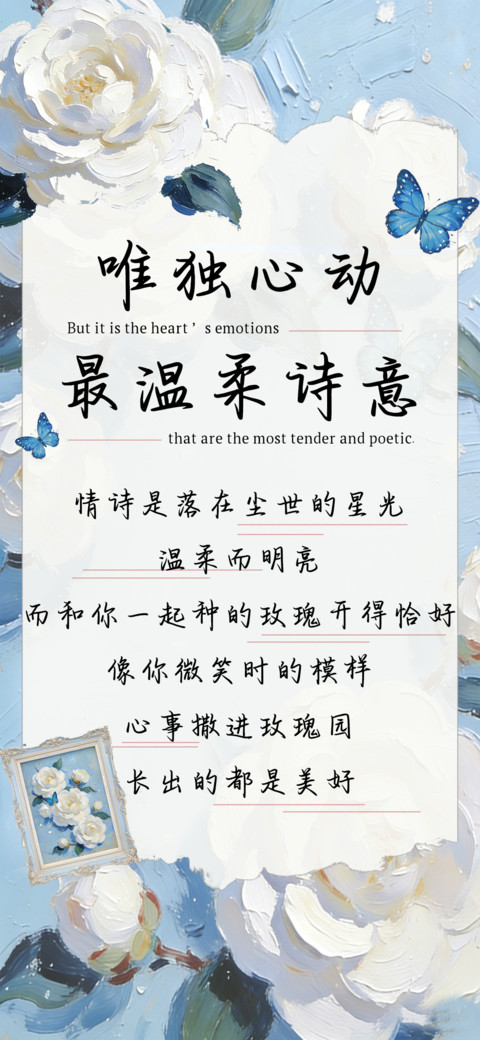 唯独心动
But it is the heart’s emotions
最温柔诗意
that are the most tender and poetic.
情诗是落在尘世的星光
温柔而明亮
而和你一起种的玫瑰开得恰好
像你微笑时的模样
心事撒进玫瑰园
长出的都是美好